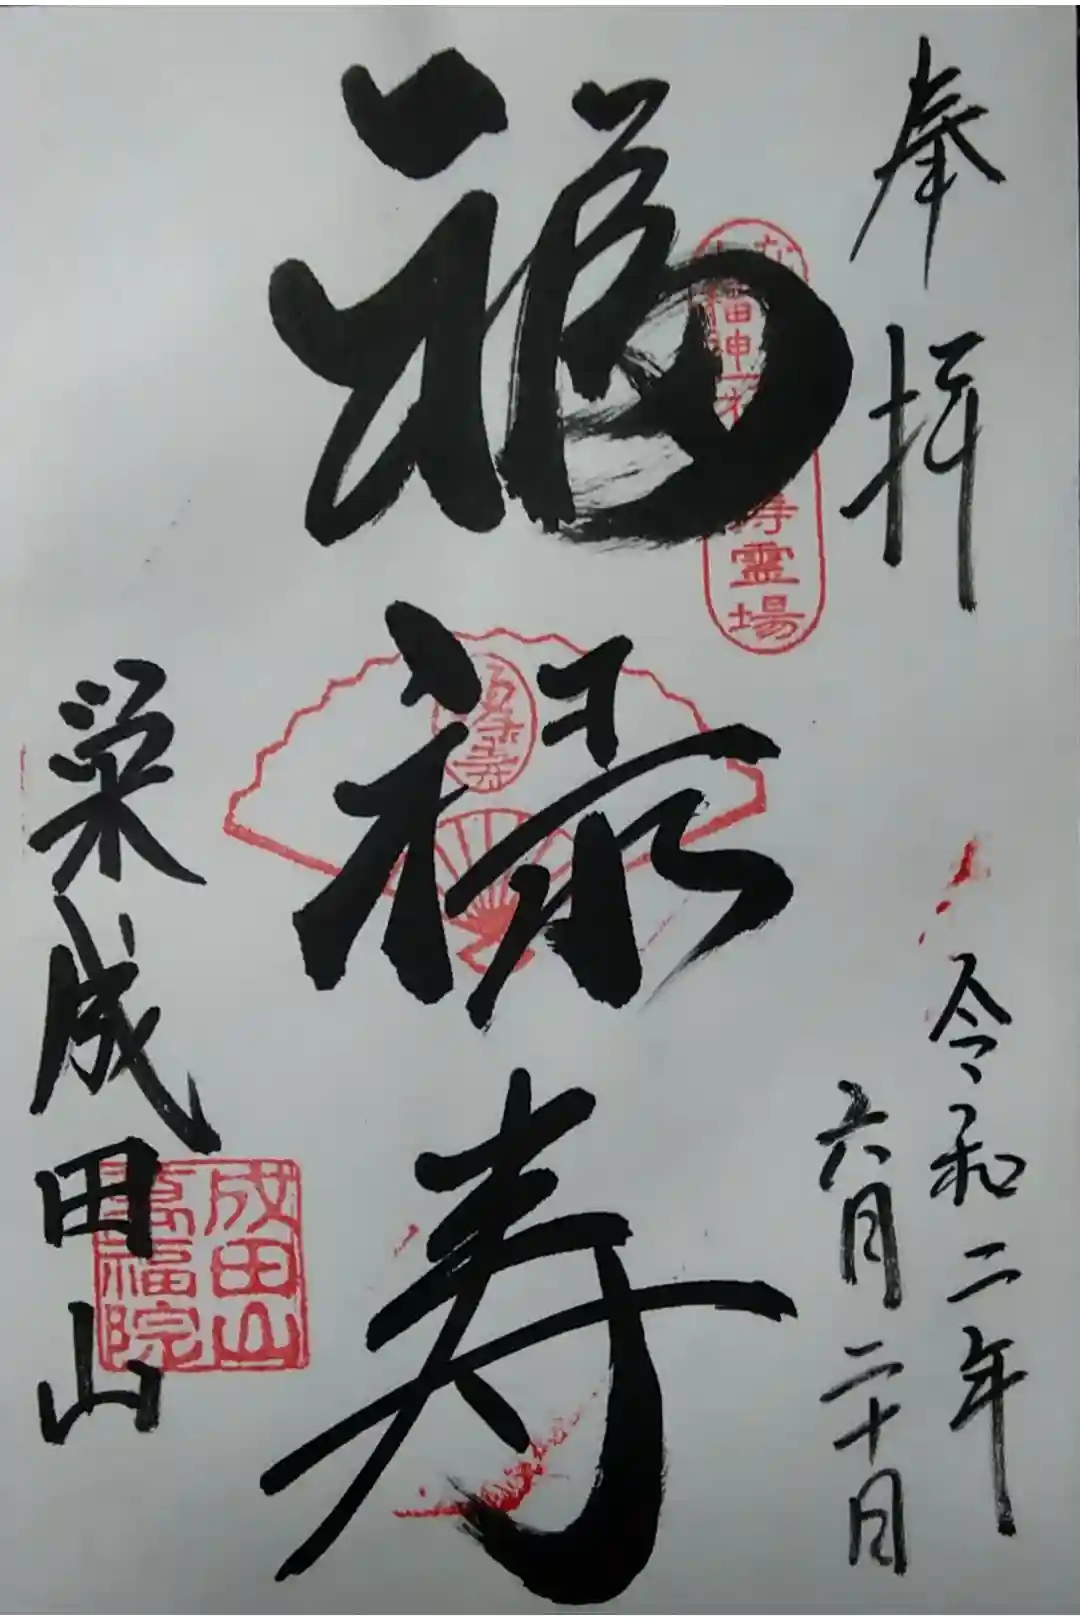 奉拝
福神
寿霊場
令和二年
六月二十日
福禄寿
栄成田山
成田山
萬福院